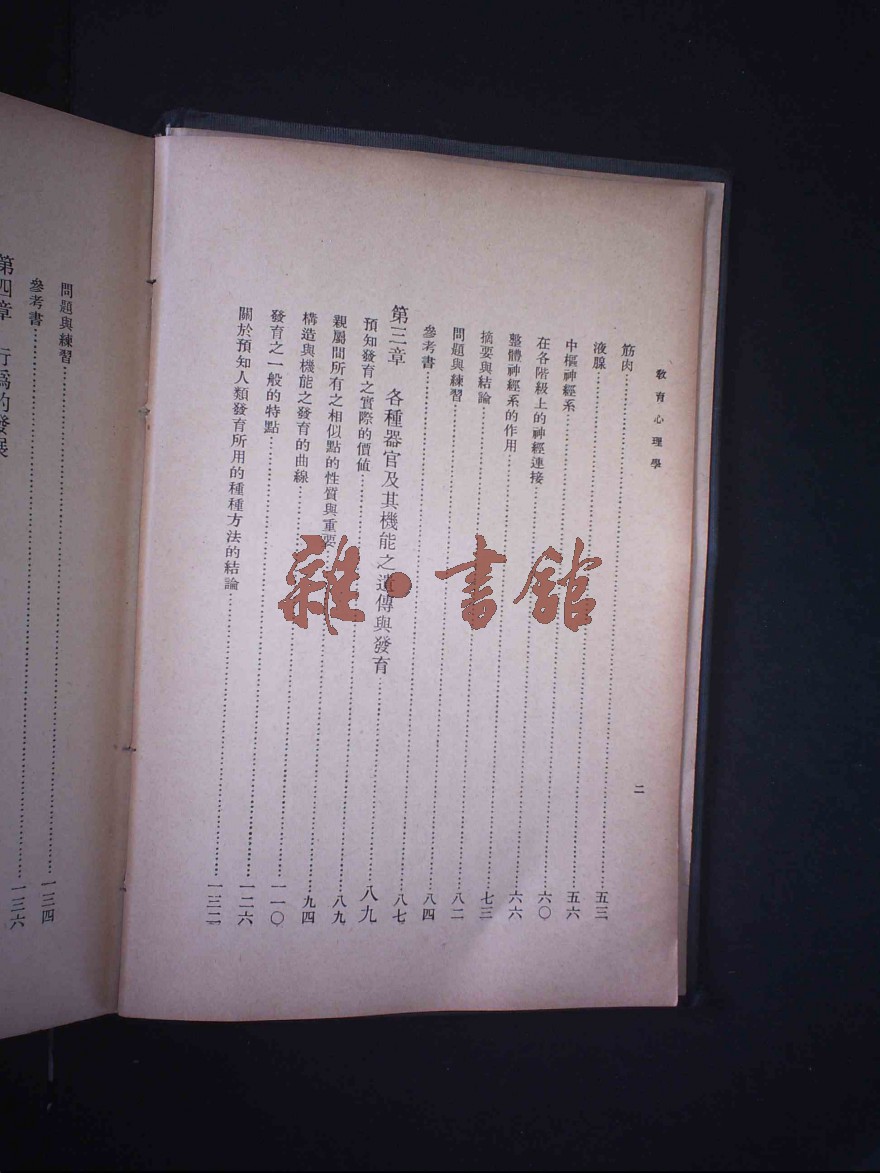 教育心理學 二
筋肉……五三
液腺……五六
中樞神經系……六〇
在各階級上的神經連接……六六
整體神經系的作用……七三
摘要與結論……八二
問題與練習……八四
參考書……八七
第三章 各種器官及其機能之遺傳與發育……八九
預知發育之實際的價值……八九
親屬間所有之相似點的性質與重要……九四
構造與機能之發育的曲線……一一〇
發育之一般的特點……一二六
關於預知人類發育所用的種種方法的結論……一三二
問題與練習……一三四
參考書……一三六
第四章 行爲的發展
雜·書館